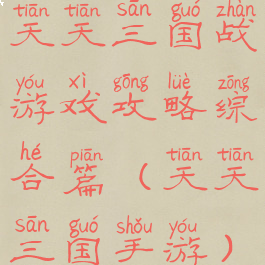 tiān tiān sān guó zhàn
天天三国战
yóu xì gōng lüè zōng
游戏攻略综
hé piān tiān tiān
合篇（天天
sān guó shǒu yóu
三国手游）